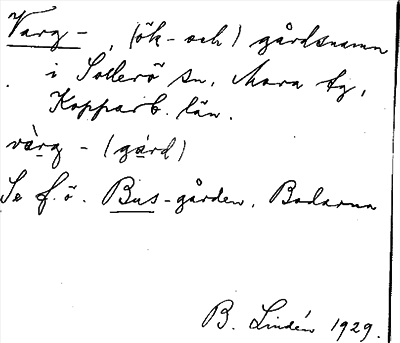 Varg-, (ök- och) gårdsnamn
i Sollerö sn, Mora tg,
Kopparb. län.
vàrg - (gård)
Se f.ö. Bus-gården, Bodarna
B. Lindén 1929.